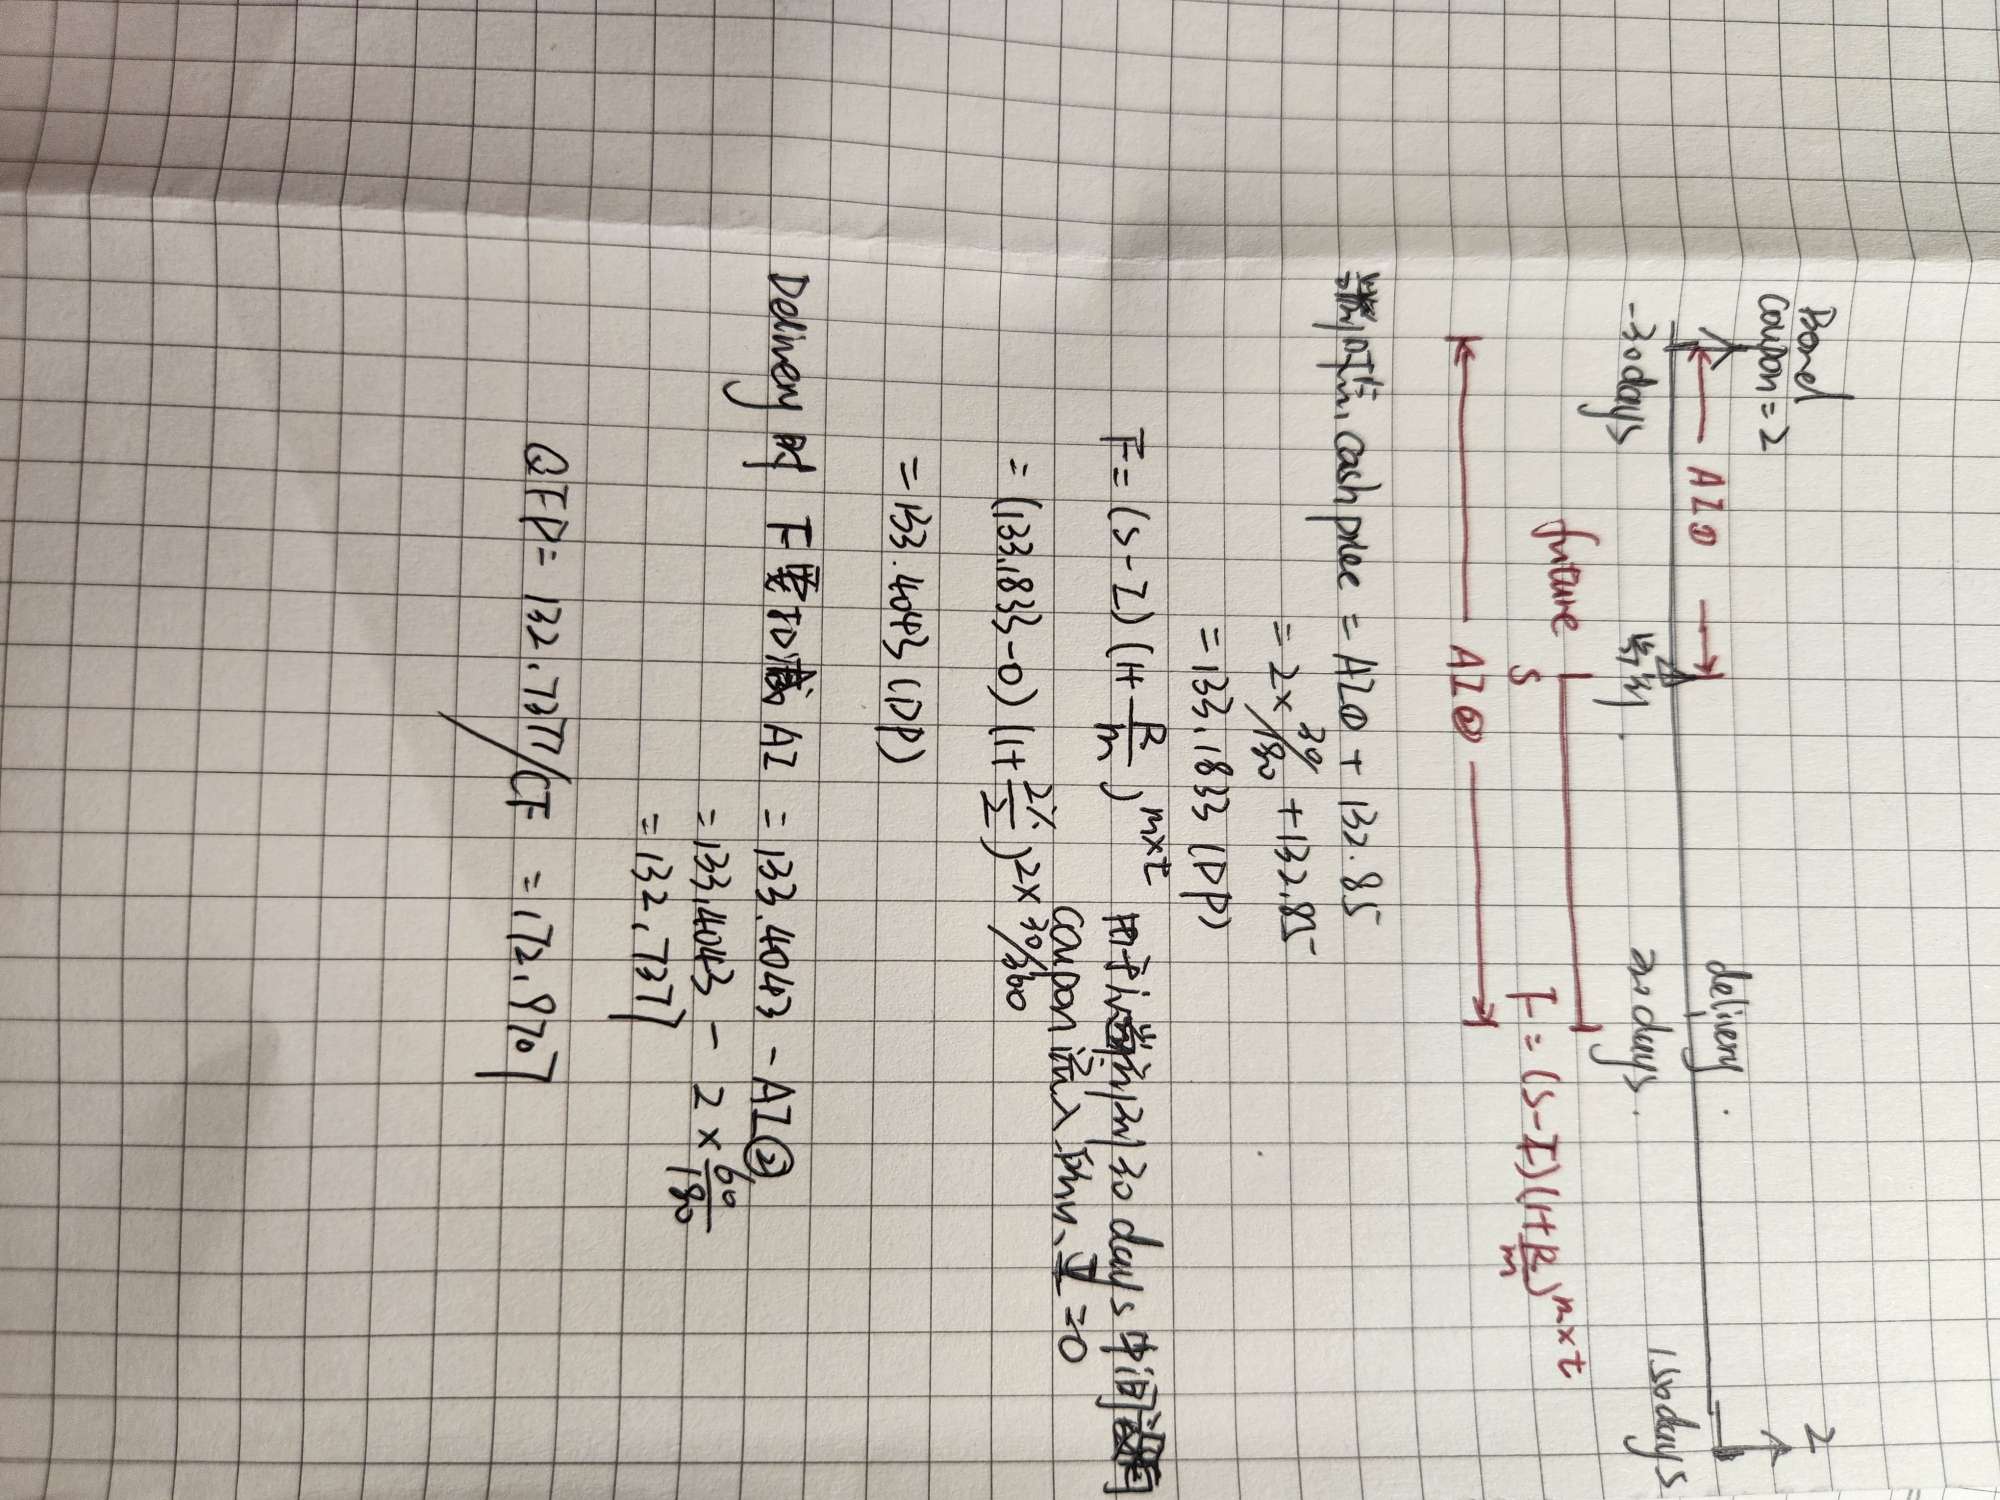 Bond
coupon=2
2
AI①
delivery.
-30days
当前.
30 days.
150days
future
S
F=(S-I)(1+R/m)^m×t
AI②
当前时点, cash price = AI① + 132.85
= 2×30/180 + 132.85
= 133.1833 (DP)
F=(S-I)(1+R/m)^m×t
由于从当前到30 days中间没有
coupon流入, 所以, I=0
=(133.1833-0)(1+2%/2)^2×30/360
=133.4043 (DP)
Delivery 时 F要扣减AI = 133.4043 - AI②
=133.4043 - 2×60/180
=132.7377
QFP= 132.7377/CF =172.8707